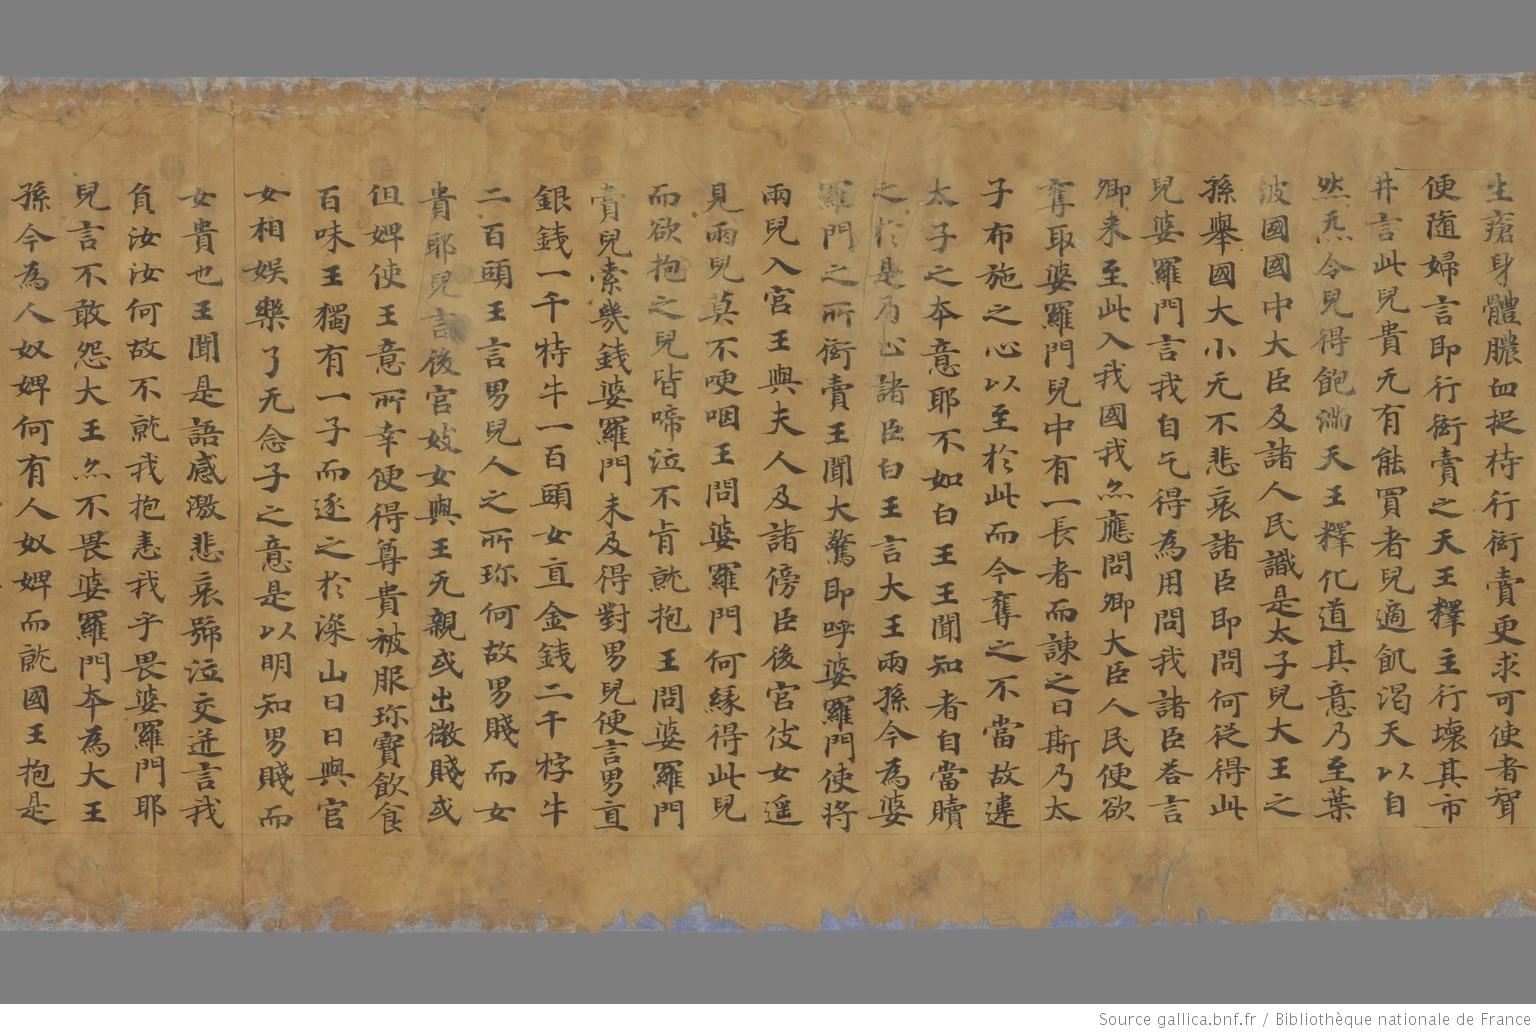 生瘡身體膿血捉持行行衒賣更求可使者聟
便随婦言即行衒賣之天王釋主行壞其市
井言此兒貴无有能買者兒適飢渴天以自
然炁令兒得飽滿天王釋化道其意乃至葉
波國國中大臣及諸人民識是太子兒大王之
孫舉國大小无不悲哀諸臣即問何從得此
兒婆羅門言我自乞得為用問我諸臣荅言
卿来至此入我國我亦應問卿大臣人民便欲
奪取婆羅門兒中有一長者而諫之曰斯乃太
子布施之心以至於此而今奪之不當故違
太子之本意耶不如白王王聞知者自當贖
之於是乃止諸臣白王言大王兩孫今為婆
羅門之所衒賣王聞大驚即呼婆羅門使將
兩兒入宫王與夫人及諸傍臣後宫伎女遥
見兩兒莫不哽咽王問婆羅門何緣得此兒
而欲抱之兒皆啼泣不肯就抱王問婆羅門
賣兒索幾錢婆羅門未及得對男兒便言男直
銀錢一千特牛一百頭女直金錢二千牸牛
二百頭王言男兒人之所珎何故男賤而女
貴耶兒言後宫妓女與王无親或出微賤或
但婢使王意所幸便得尊貴被服珎寶飲食
百味王獨有一子而逐之於深山日日與宫
女相娱樂了无念子之意是以明知男賤而
女貴也王聞是語感激悲哀號泣交迸言我
負汝汝何故不就我抱恚我乎畏婆羅門耶
兒言不敢怨大王亦不畏婆羅門本為大王
孫今為人奴婢何有人奴婢而就國王抱是
Source gallica.bnf.fr / Bibliothèque nationale de France